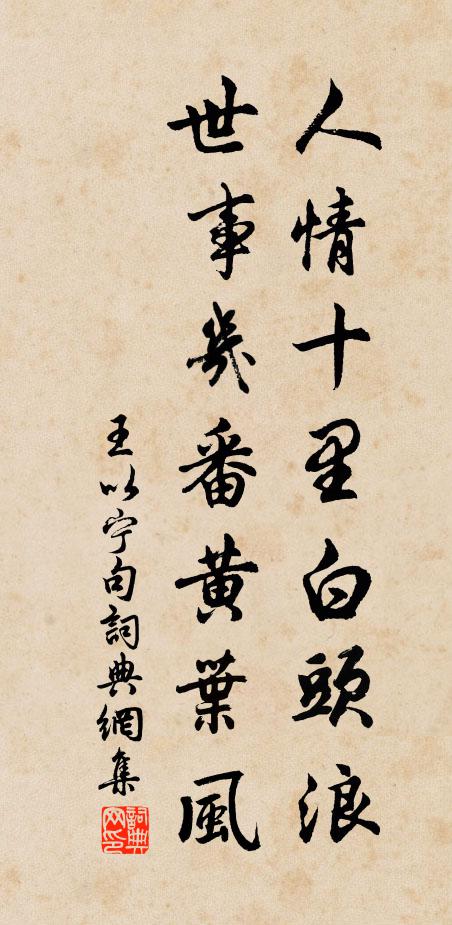 人情十里白頭浪
世事幾番黃葉風
王以宁句詞典網集
詞典网印